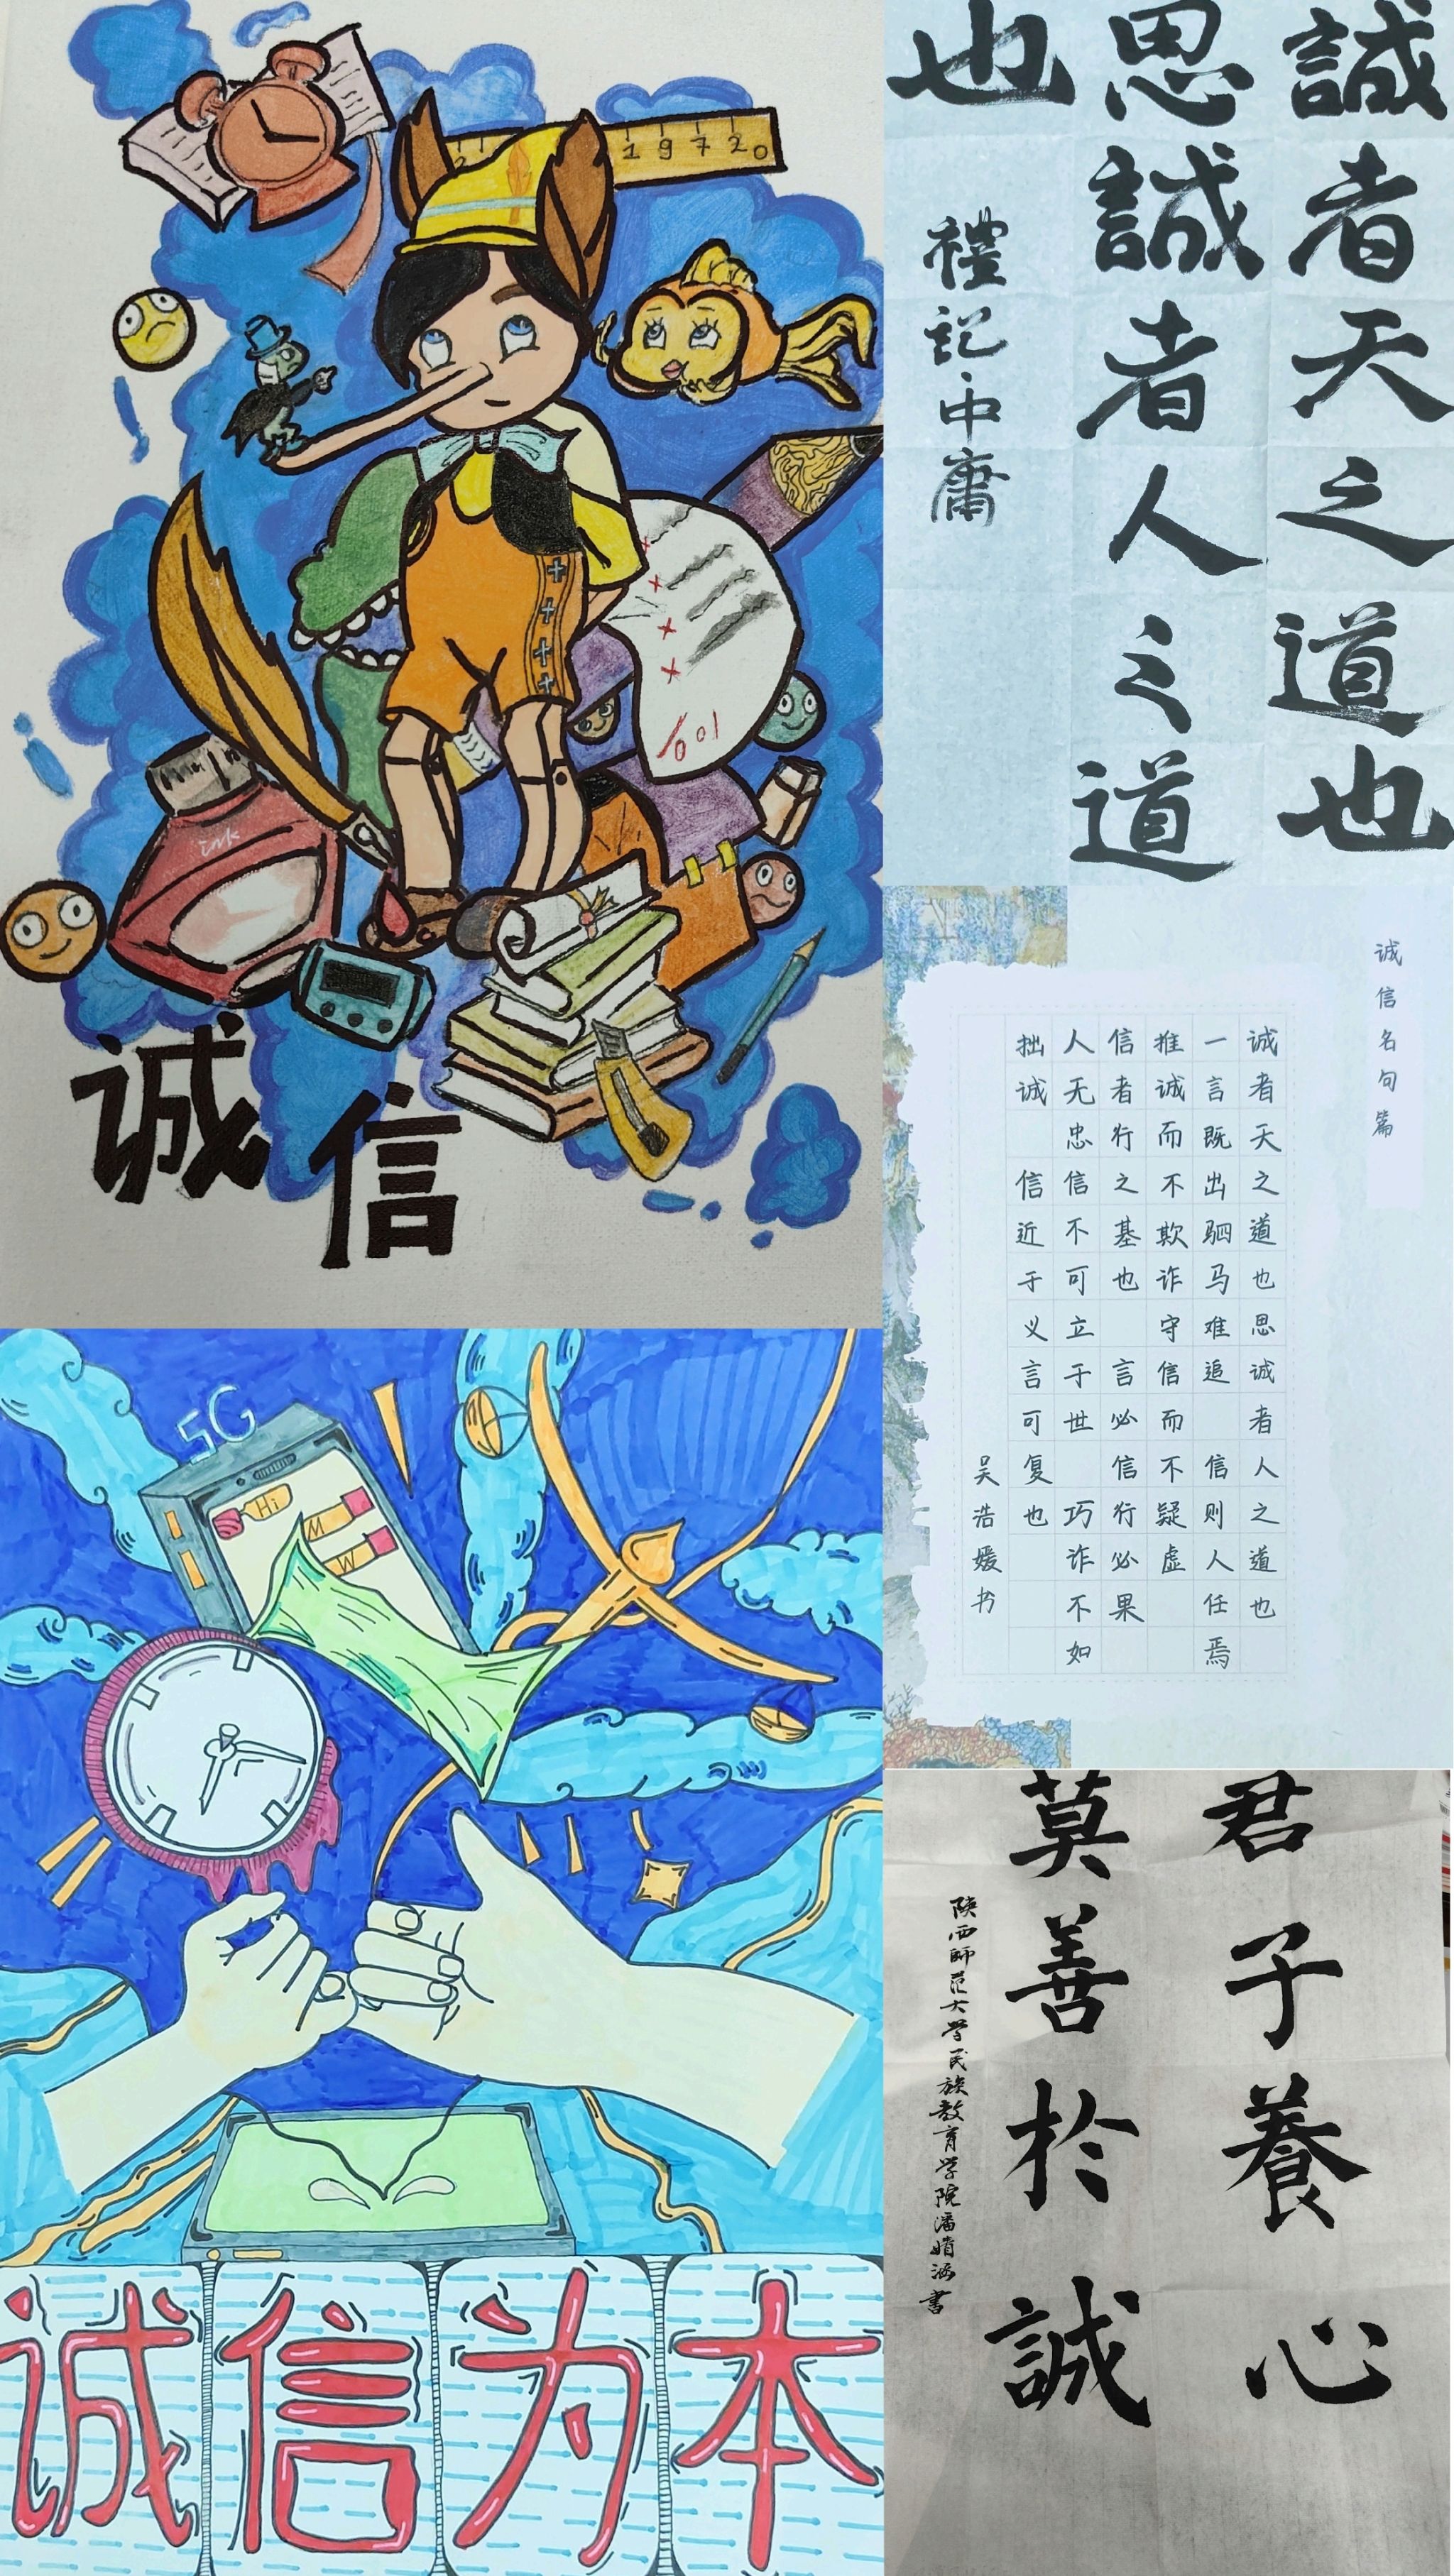 19720
ink
诚信
誠者天之道也
思誠者人之道
也
禮記·中庸
诚信名句篇
诚者天之道也思诚者人之道也
一言既出驷马难追 信则人任焉
推诚而不欺诈守信而不疑虚
信者行之基也 言必信行必果
人无忠信不可立于世 巧诈不如
拙诚 信近于义言可复也
吴浩媛书
5G
Hi
M
W
诚信为本
君子養心
莫善於誠
陕西師范大学民族教育学院潘婧涵書